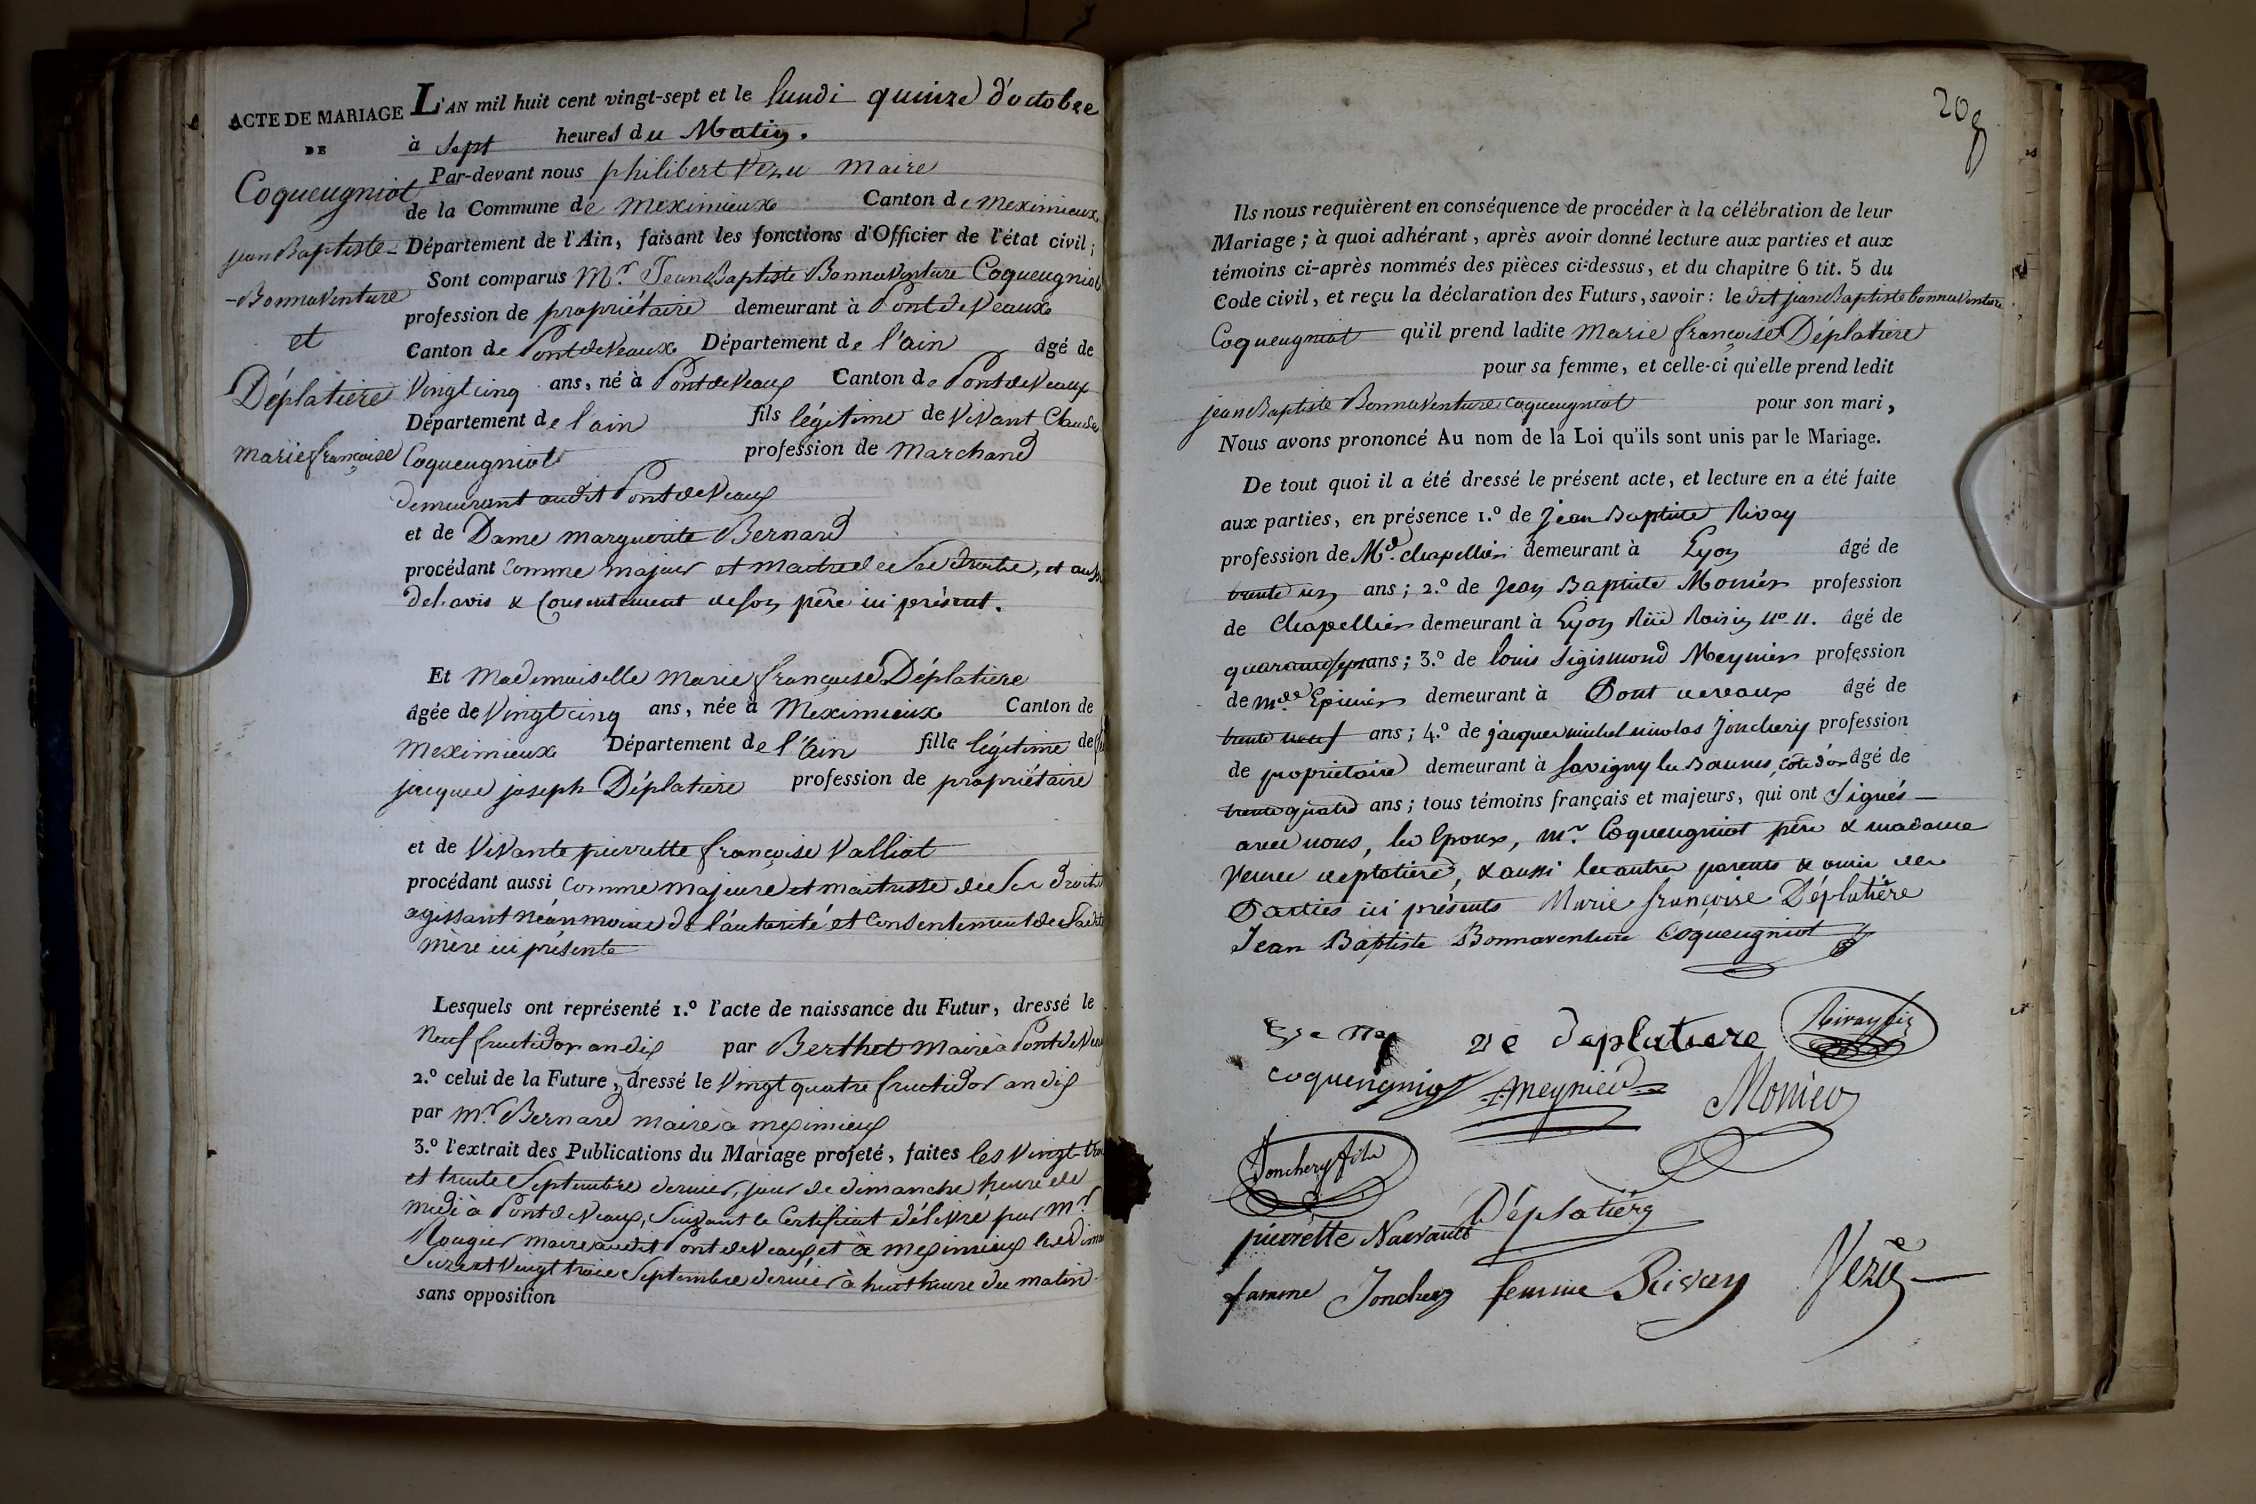 ACTE DE MARIAGE
DE
Coqueugniot
jean Baptiste -
- Bonnaventure
et
Déplatiere
marie françoise
L'AN mil huit cent vingt-sept et le lundi quinze d'octobre
à sept heures du Matin.
Par-devant nous philibert Vezu Maire
de la Commune de Meximieux Canton de Meximieux
Département de l'Ain, faisant les fonctions d'Officier de l'état civil;
Sont comparus Mr. Jean Baptiste Bonnaventure Coqueugniot
profession de propriétaire demeurant à Pont de Veaux
Canton de Pont de Veaux Département de l'ain âgé de
Vingt cinq ans, né à Pont de Veaux Canton de Pont de Veaux
Département de l'ain fils légitime de Vivant Claude
Coqueugniot profession de Marchand
demeurant audit Pont de Veaux
et de Dame marguerite Bernard
procédant Comme majeur et maitre de ses droits, et aussi
de l'avis & Consentement de son père ici présent.
Et Mademoiselle Marie françoise Déplatiere
âgée de Vingt cinq ans, née à Meximieux Canton de
Meximieux Département de l'Ain fille légitime de
jacques joseph Déplatiere profession de propriétaire
et de Vivante pierrette françoise Valliat
procédant aussi Comme majeure et maitresse de ses droits
agissant néanmoins de l'autorité et Consentement de sadite
mère ici présente
Lesquels ont représenté 1.º l'acte de naissance du Futur, dressé le
Neuf fructidor an dix par Berthet maire à Pont de Veaux
2.º celui de la Future, dressé le Vingt quatre fructidor an dix
par Mr Bernard maire à meximieux
3.º l'extrait des Publications du Mariage projeté, faites les Vingt-trois
et trente Septembre dernier, jour de dimanche heure de
midi à Pont de Veaux, Suivant le Certificat délivré par Mr
Rougier maire audit Pont de Veaux et à meximieux les
Seize et Vingt trois Septembre dernier à huit heure du matin
sans opposition
208
Ils nous requièrent en conséquence de procéder à la célébration de leur
Mariage; à quoi adhérant, après avoir donné lecture aux parties et aux
témoins ci-après nommés des pièces ci-dessus, et du chapitre 6 tit. 5 du
Code civil, et reçu la déclaration des Futurs, savoir: le dit jean Baptiste bonnaventure
Coqueugniot qu'il prend ladite Marie françoise Déplatiere
pour sa femme, et celle-ci qu'elle prend ledit
jean Baptiste Bonnaventure Coqueugniot pour son mari,
Nous avons prononcé Au nom de la Loi qu'ils sont unis par le Mariage.
De tout quoi il a été dressé le présent acte, et lecture en a été faite
aux parties, en présence 1.º de Jean Baptiste Rivay
profession de Md. chapellier demeurant à Lyon âgé de
trente un ans; 2.º de Jean Baptiste Monier profession
de Chapellier demeurant à Lyon Rüe Raisin no. 11. âgé de
quarante sept ans; 3.º de louis Sigismond Meynier profession
de md Epicier demeurant à Pont de vaux âgé de
trente neuf ans; 4.º de jacques michel nicolas Jonchery profession
de propriétaire demeurant à Savigny les Baunes, côte d'or âgé de
trente quatre ans; tous témoins français et majeurs, qui ont signés -
avec nous, les Epoux, Mr. Coqueugniot père & madame
Veuve déplatière, & aussi les autres parents & amis des
Parties ici présents Marie françoise Déplatière
Jean Baptiste Bonnaventure Coqueugniot
ve deplatiere Rivay fils
coqueugniot Meynier Monier
Jonchery fils
Déplatière
pierrette Navrault
famme Jonchery femme Rivay Vezu